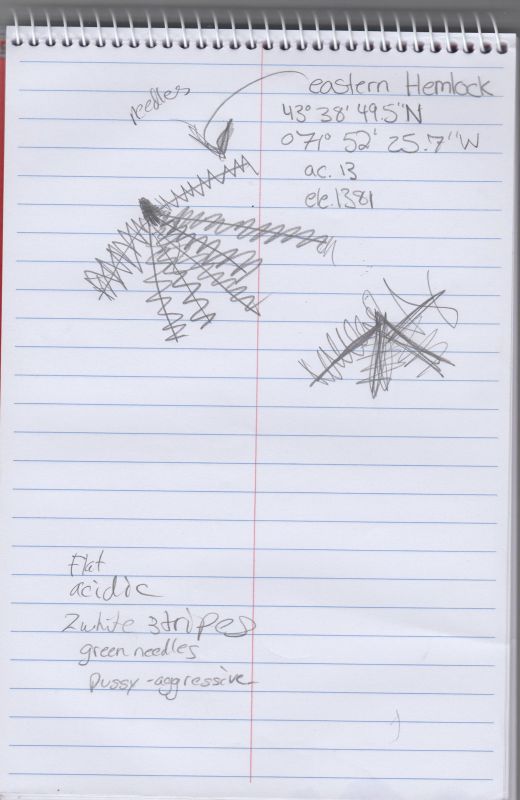 needles
eastern Hemlock
43° 38' 49.5"N
071° 52' 25.7"W
ac. 13
ele. 1381
Flat
acidic
2 white stripes
green needles
pussy-aggressive